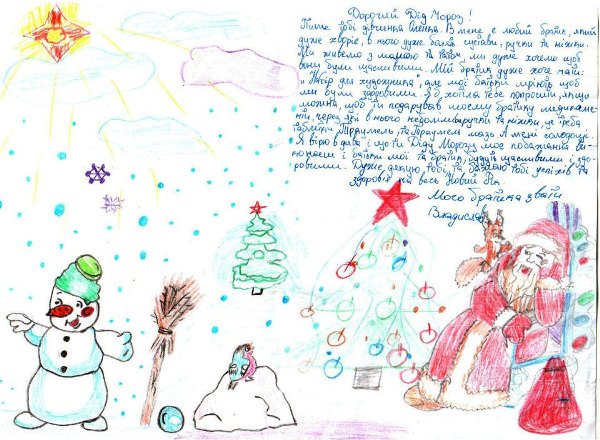 Дорогий Дід Мороз!
Пише тобі дівчинка Оленка. В мене є любий братик, який
дуже хворіє, в нього дуже болять суглоби, ручки та ніжки.
Ми живемо з мамою та татом, ми дуже хочемо щоб
вони були щасливими. Мій братик дуже хоче мати:
"Набір для художника", але мої батьки мріють щоб
ми були здоровими. Я б хотіла тебе попросити, якщо
можна, щоб ти подарував моєму братику
через які в нього ручки та ніжки, це треба
Траумель та Траумель мазь А мені солодощі.
Я вірю в дива і що ти Діду Морозу, моє побажання ви-
конаєш і батьки мої та братик будуть щасливими і здо-
ровими. Дуже дякую тобі та бажаю тобі успіхів та
здоров'я на весь Новий Рік.
Мого братика звати
Владислав